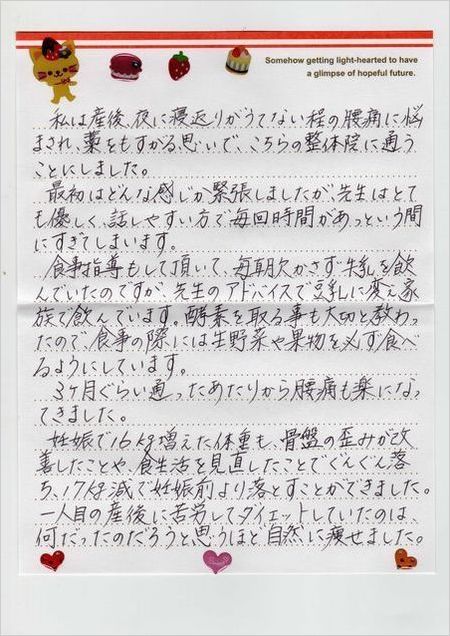 Somehow getting light-hearted to have
a glimpse of hopeful future.
私は産後、夜に寝返りがうてない程の腰痛に悩
まされ、藁をもすがる思いで、こちらの整体院に通う
ことにしました。
最初はどんな感じか緊張しましたが、先生はとて
も優しく、話しやすい方で毎回時間があっという間
にすぎてしまいます。
食事指導もして頂いて、毎朝欠かさず牛乳を飲
んでいたのですが、先生のアドバイスで豆乳に変え家
族で飲んでいます。酵素を取る事も大切と教わっ
たので、食事の際には生野菜や果物を必ず食べ
るようにしています。
3ヶ月ぐらい通ったあたりから腰痛も楽になっ
てきました。
妊娠で16kg増えた体重も、骨盤の歪みが改
善したことや、食生活を見直したことでぐんぐん落
ち、17kg減で妊娠前より落とすことができました。
一人目の産後に苦労してダイエットしていたのは、
何だったのだろうと思うほど自然に痩せました。